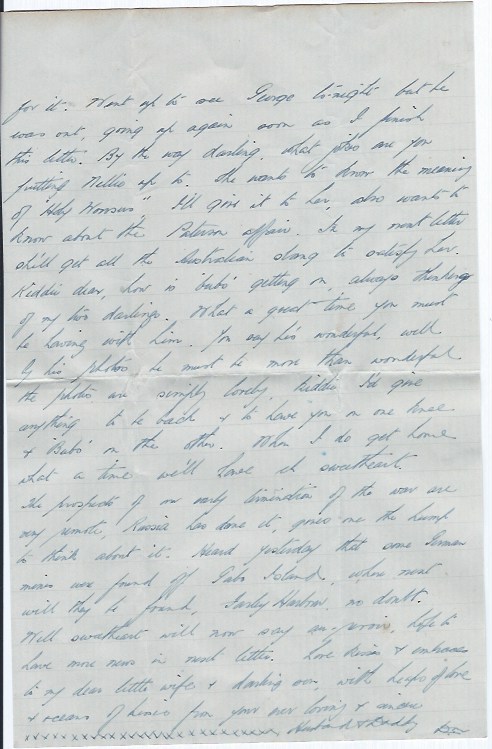 for it. Went up to see George to-night but he
was out, going up again soon as I finish
this letter. By the way darling, what jokes are you
putting Nellie up to. She wants to know the meaning
of I'll give it to her, also wants to
know about the Paterson affair. In my next letter
shall get all the Australian slang to satisfy her.
Kiddie dear, how is 'babs' getting on, always thinking
of my two darlings. What a great time you must
be having with him. You say he's wonderful, well
by his photos, he must be more than wonderful
the photos are simply lovely. Kiddie I'd give
anything to be back & to have you on one knee
& 'Babs' on the other. When I do get home
what a time we'll have eh sweetheart.
The prospects of an early termination of the war are
very remote, Russia has done it, gives one the hump
to think about it. Heard yesterday that some German
mines were found off Gabo Island, where next
will they be found, Harbour no doubt.
Well sweetheart will now say au-revoir, hope to
have more news in next letter. Love kisses & embraces
to my dear little wife & darling son, with heaps of love
& oceans of kisses from your ever loving & sincere
xxxxxxxxxxxxxxxxxxxxxxxx Husband & Daddy